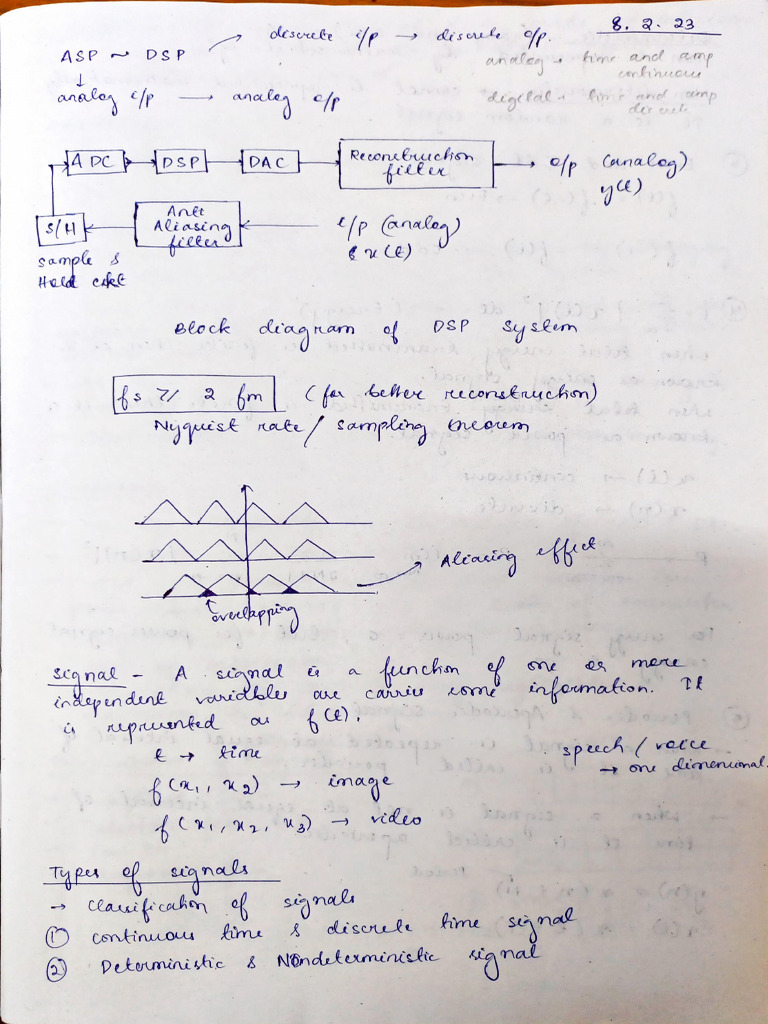 8. 2. 23
discrete i/p → discrete o/p.
ASP ~ DSP
analog → time and amp
continuous
↓
analog i/p → analog o/p
digital → time and amp
discrete
ADC → DSP → DAC → Reconstruction filter → o/p (analog)
y(t)
S/H ← Anti Aliasing filter ← i/p (analog)
x(t)
Sample &
Hold ckt
Block diagram of DSP system
fs ≥ 2 fm (for better reconstruction)
Nyquist rate / sampling theorem
Aliasing effect
overlapping
Signal - A signal is a function of one or more
independent variables are carries some information. It
is represented as f(t).
t → time
speech / voice
→ one dimensional.
f(x₁, x₂) → image
f(x₁, x₂, x₃) → video
Types of signals
→ classification of signals
① continuous time & discrete time signal
② Deterministic & Nondeterministic signal